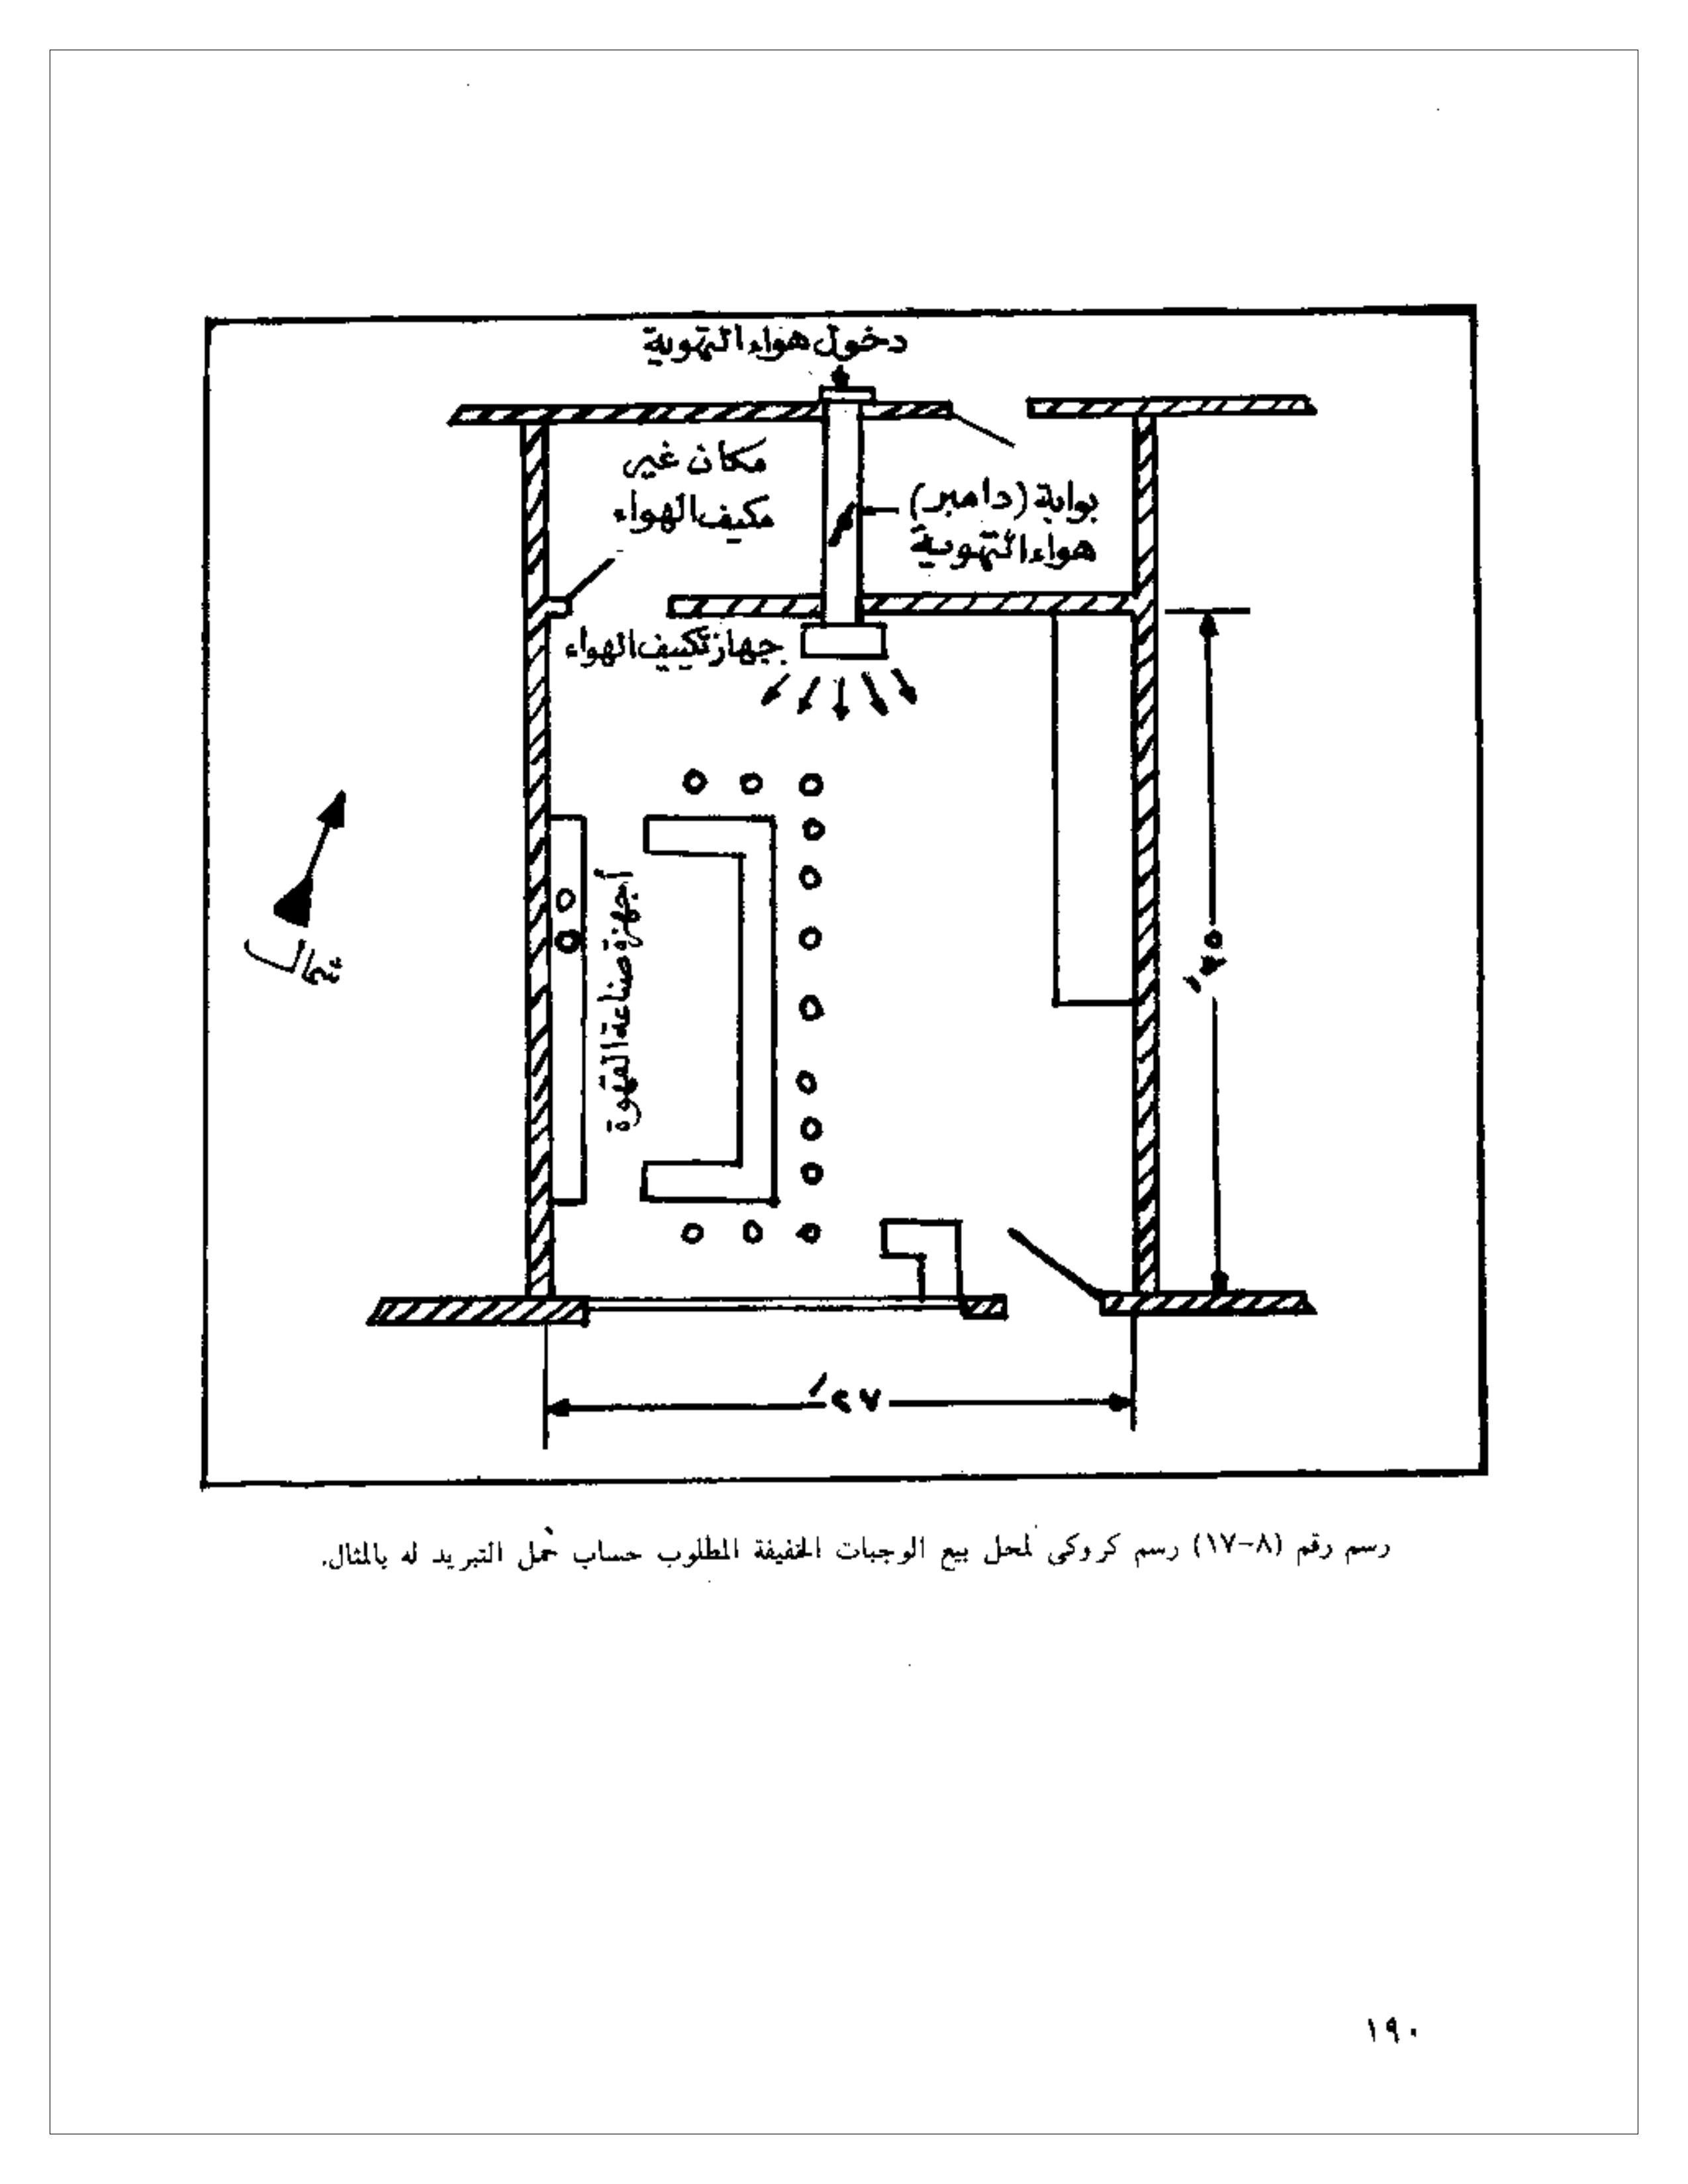 دخول هواء التهوية
مكان غير
مكيف الهواء
بوابة (دامبر)
هواء التهوية
جهاز تكييف الهواء
أجهزة صناعة القهوة
شمال
٢٧′
رسم رقم (٨-١٧) رسم كروكى لمحل بيع الوجبات الخفيفة المطلوب حساب حمل التبريد له بالمثال.
١٩٠